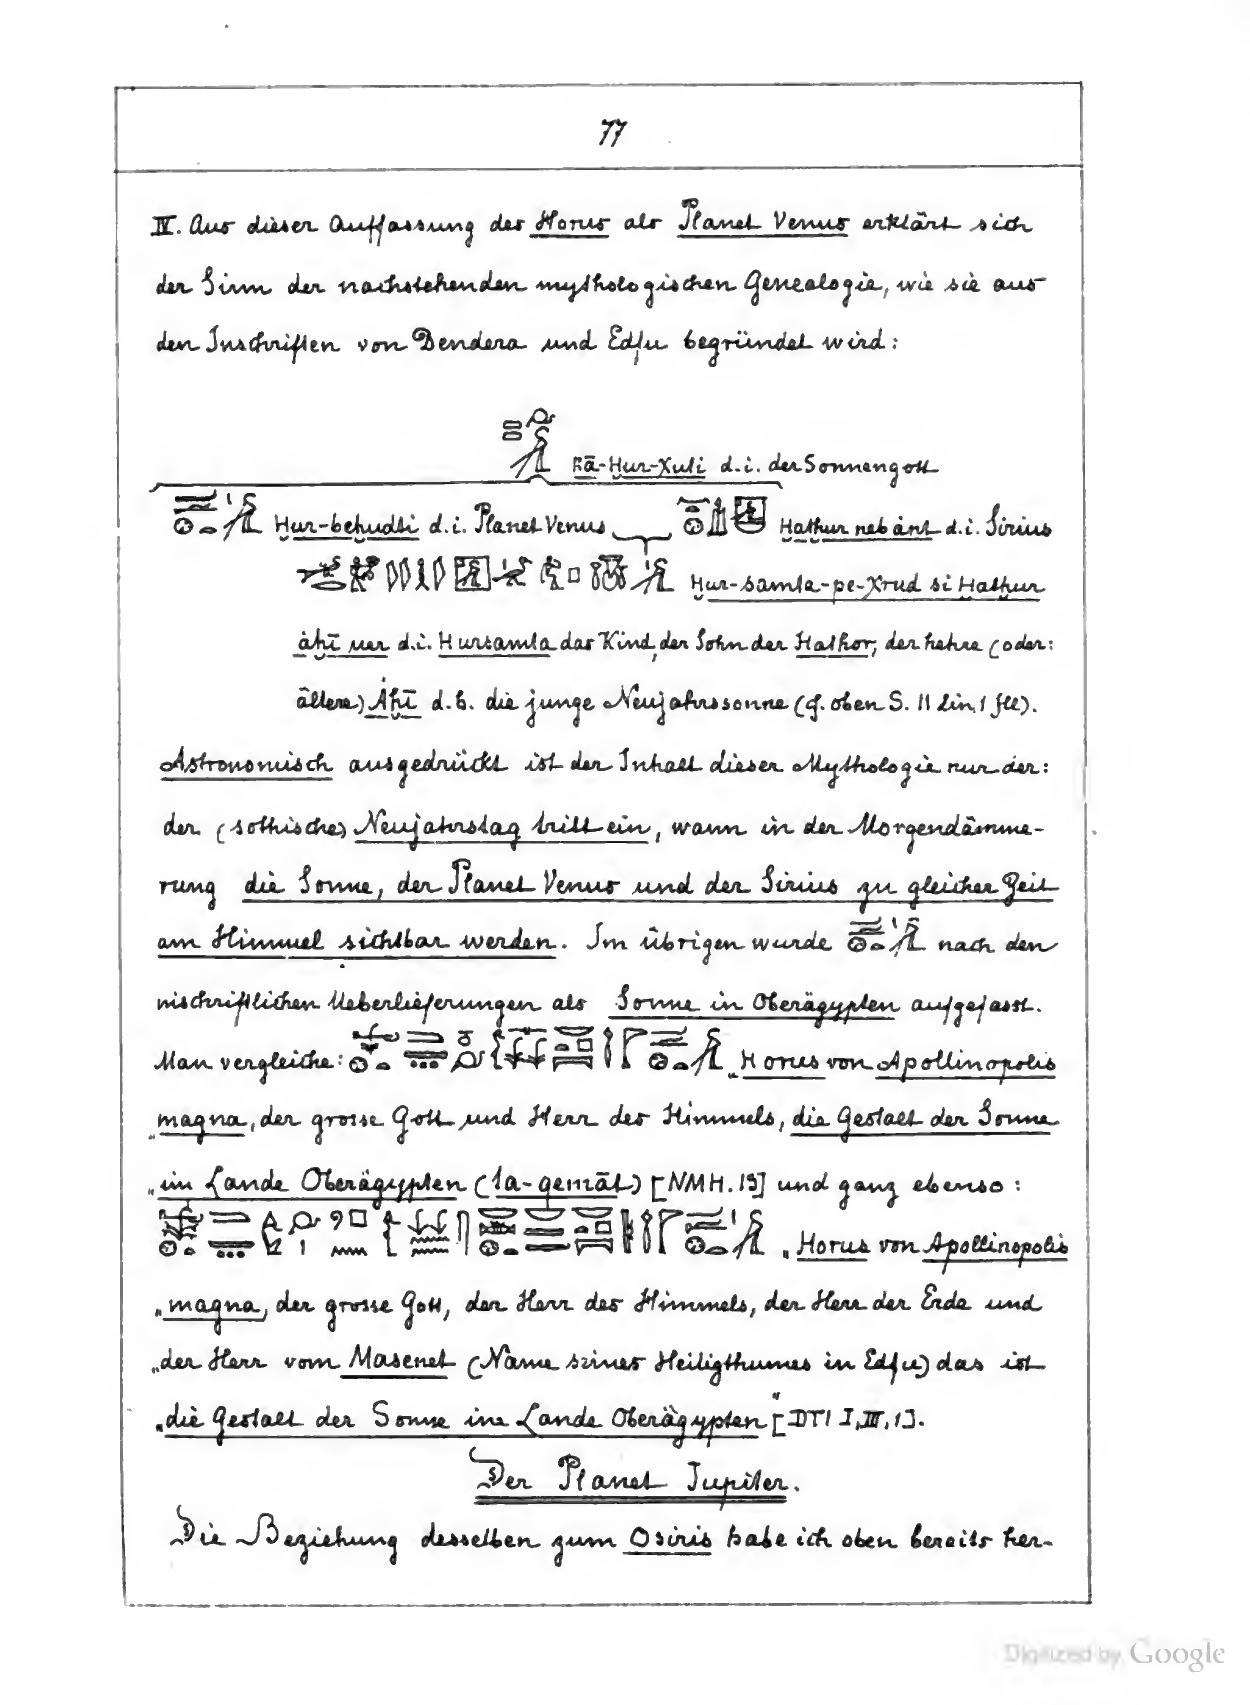 77
IV. Aus dieser Auffassung des Horus als Planet Venus erklärt sich
der Sinn der nachstehenden mythologischen Genealogie, wie sie aus
den Inschriften von Dendera und Edfu begründet wird:
Rā-Hur-Xuti d.i. der Sonnengott
Hur-behudti d.i. Planet Venus Hathur neb ànt d.i. Sirius
Hur-samta-pe-Xrud si Hathur
àhī uer d.i. Hursamta das Kind, der Sohn der Hathor, der hehre (oder:
ältere) Áhī d.h. die junge Neujahrssonne (cf. oben S. 11 lin. 1 fll).
Astronomisch ausgedrückt ist der Inhalt dieser Mythologie nur der:
der (sothische) Neujahrstag tritt ein, wann in der Morgendämme-
rung die Sonne, der Planet Venus und der Sirius zu gleicher Zeit
am Himmel sichtbar werden. Im übrigen wurde nach den
inschriftlichen Ueberlieferungen als Sonne in Oberägypten aufgefasst.
Man vergleiche: „Horus von Apollinopolis
„magna, der grosse Gott und Herr des Himmels, die Gestalt der Sonne
„im Lande Oberägypten (ta-qemāt) [NMH. 19] und ganz ebenso:
„Horus von Apollinopolis
„magna, der grosse Gott, der Herr des Himmels, der Herr der Erde und
„der Herr vom Masenet (Name seines Heiligthumes in Edfu) das ist
„die Gestalt der Sonne im Lande Oberägypten" [DTI I, III, 1].
Der Planet Jupiter.
Die Beziehung desselben zum Osiris habe ich oben bereits her-
Digitized by Google